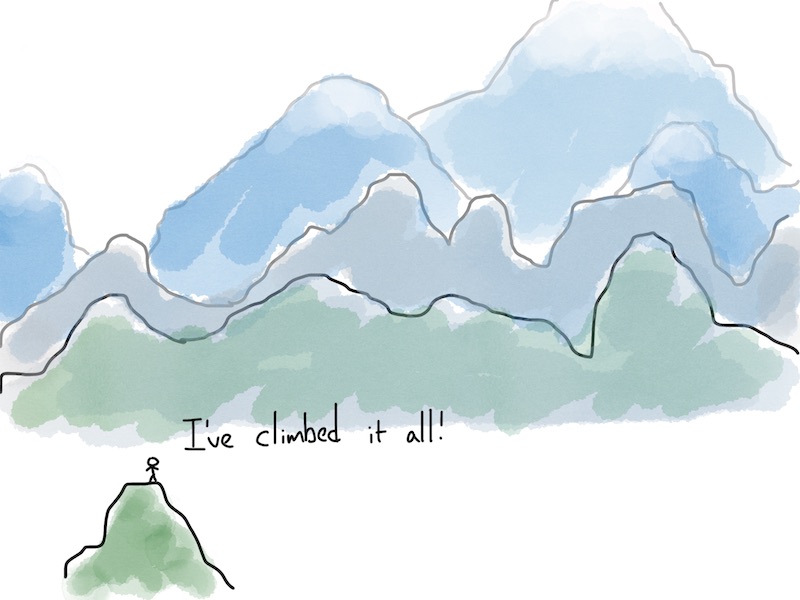 I've climbed it all!